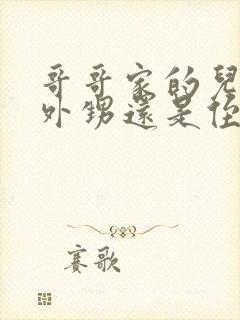 哥哥家的兒
外甥還是侄
賽歌